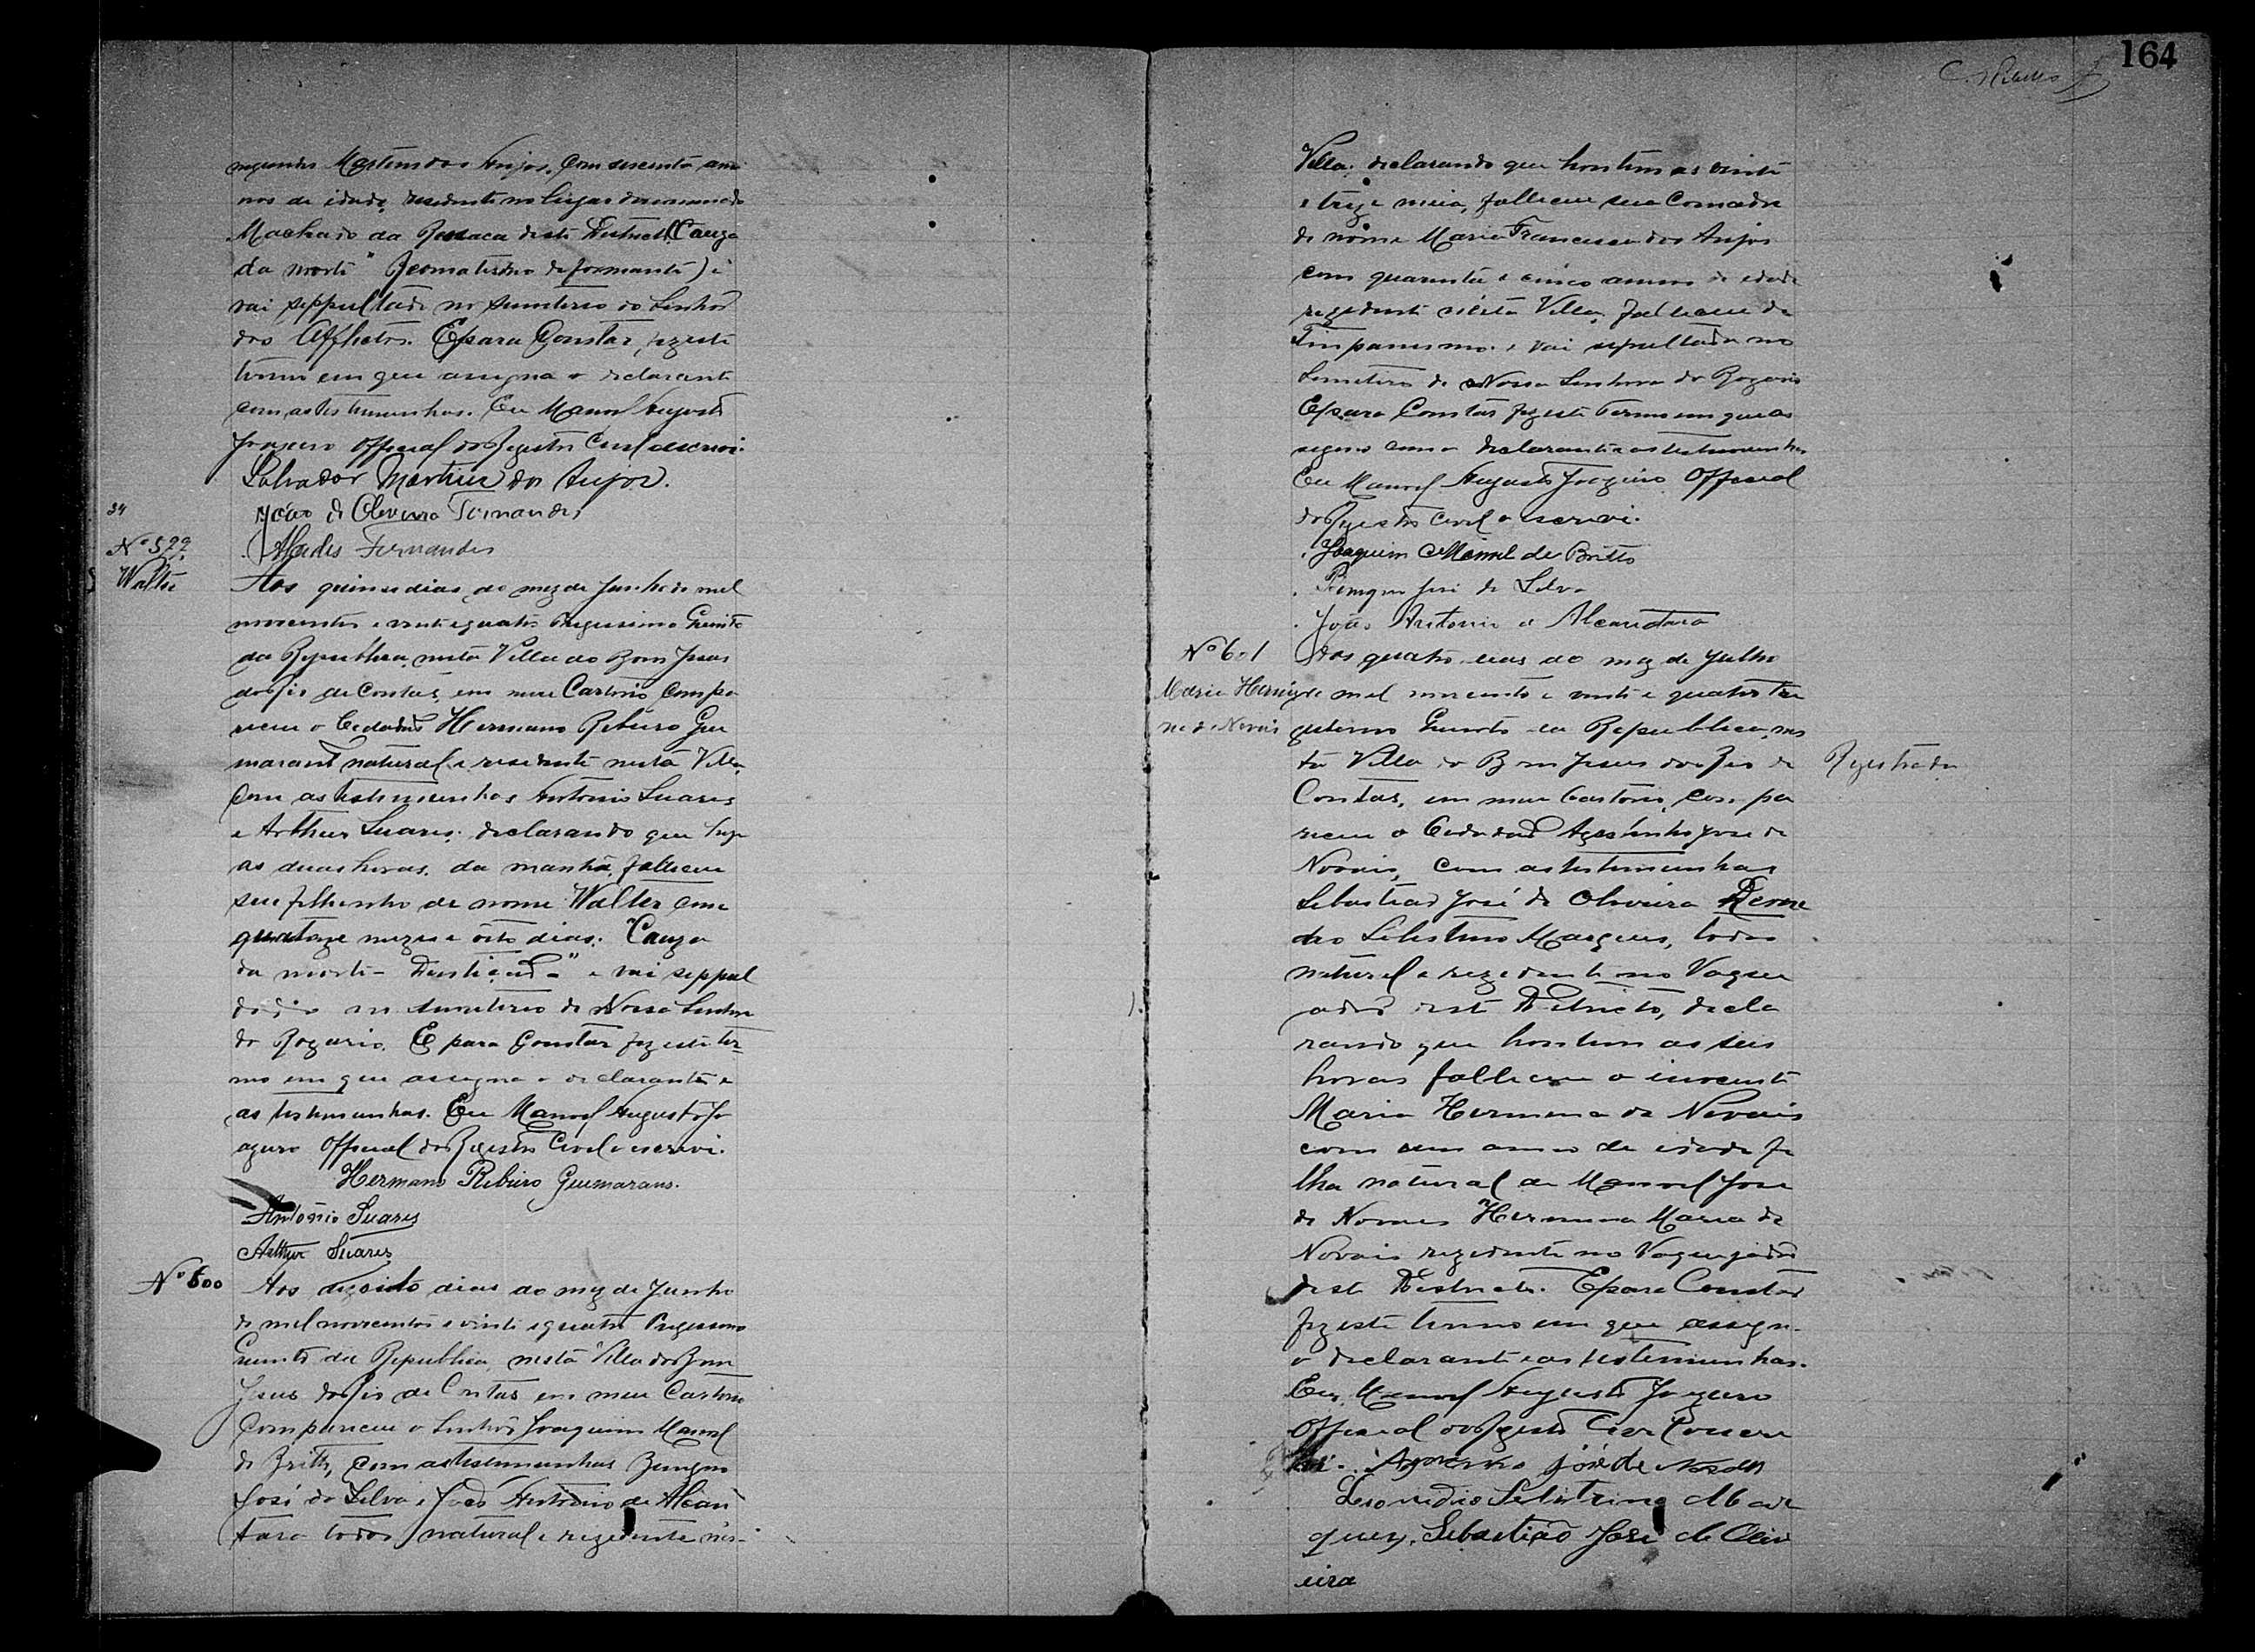 164
Martins dos Anjos, com sesenta an
nos de idade, residente no lugar denominado
Machado da deste Districto (Cauza
da morte " Reomatismo deformante) e
vai seppultado no semiterio do Senhor
dos Afflictos. E para Constar, fiz este
termo em que assigna o declarante
com as testimunhas. Eu Manoel Augusto
Joazeiro Official do Rezistro Civil o escrevi.
Salvador Martins dos Anjos.
João de Oliveira Fernandes
34
Nº 599
Alcides Fernandes
Walter
Aos quinse dias do mez de Junho de mil
novecentos e vinte e quatro Trigessimo Quinto
da Republica, nesta Villa do Bom Jesus
do Rio de Contas, em meu Cartorio Compa
receu o Cidadão Hermano Ribeiro Gui
maraens natural e residente nesta Villa,
Com as testimunhas Antonio Suares
e Arthur Suares; declarando que hoje
as duas horas, da manhã, falleceu
seu filhinho de nome Walter com
quatorze mezes e oito dias. "Cauza
da morte - Dentição" e vai seppul
tado no semiterio de Nossa Senhora
do Rozario. E para Constar fiz este ter
mo em que assigna o declarante e
as testimunhas. Eu Manoel Augusto Jo
azeiro Official do Rezistro Civil o escrevi.
Hermano Ribeiro Guimaraens.
Antonio Suares
Arthur Suares
Nº 600
Aos dezoito dias do mez de Junho
de mil novecentos e vinte e quatro Trigessimo
Quinto da Republica, nesta Villa do Bom
Jesus do Rio de Contas em meu Cartorio
Compareceu o Senhor Joaquim Manoel
de Britto, com as testimunhas Benigno
José da Silva e João Antonio de Alcan
tara todos natural e rezidente nes-
Villa; declarando que hontem as vinte
e trez e meia, falleceu sua Comadre
de nome Maria Francisca dos Anjos
com quarenta e cinco annos de edade
rezidente nesta Villa, falleceu de
Timpanismo e vai sepultada no
Semiterio de Nossa Senhora do Rozario
E para Constar fiz este termo em que as
signo com o declarante e as testimunhas
Eu Manoel Augusto Joazeiro Official
do Rezistro Civil o escrevi.
Joaquim Manoel de Britto
Benigno José da Silva
João Antonio d Alcantara
Nº 601
Aos quatro dias do mez de Julho
Maria Hermi de mil novecentos e vinte e quatro Tri
na de Novais gesimo Quinto da Republica, nes
ta Villa do Bom Jesus do Rio de
Registrada
Contas, em meu Cartorio, compa
receu o Cidadão Agostinho José de
Novais, com as testimunhas
Sebastião José de Oliveira
Selistino Marques, todos
natural e rezidente no Vaquei
ador deste Districto, decla
rando que hontem as seis
horas falleceu a inocente
Maria Hermina de Novais
com um anno de idade fi
lha natural de Manoel José
de Novais Hermina Maria de
Novais rezidente no Vaquejador
deste Districto. E para Constar
fiz este termo em que assigna
o declarante e as testimunhas.
Eu, Manoel Augusto Joazeiro
Official do Rezistro Civil o escre
vi. José de
Leonidio Selistrino Mar
ques, Sebastião José de Oliv
eira